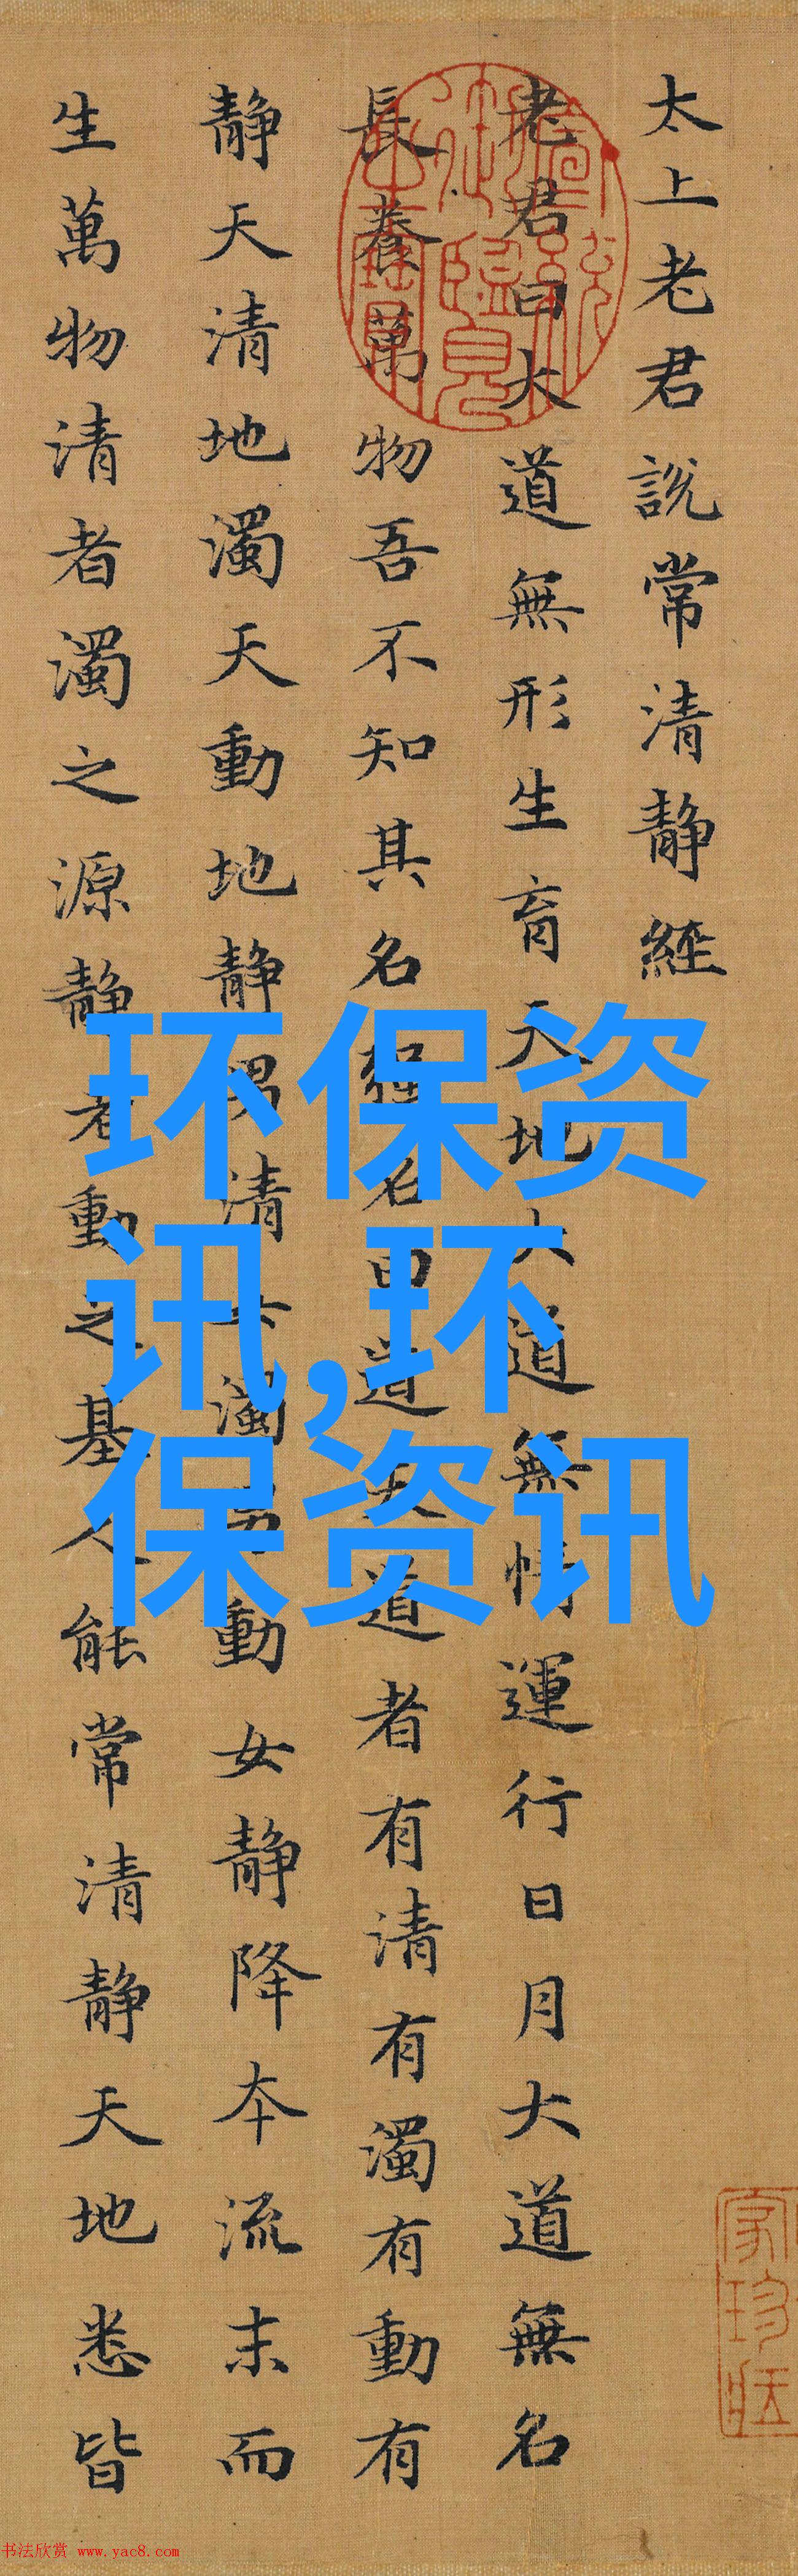 太上老君說常清静經
老君曰大道無形生育天地大道無情運行日月大道無名
長養萬物吾不知其名強名曰道夫道者有清有濁有動有
静天清地濁天動地静男清女濁男動女静降夲流末而
生萬物清者濁之源静者動之基人能常清静天地悉皆
宣統御覽之寶
环保资
讯,环
保资讯
书法欣赏 www.yac8.com